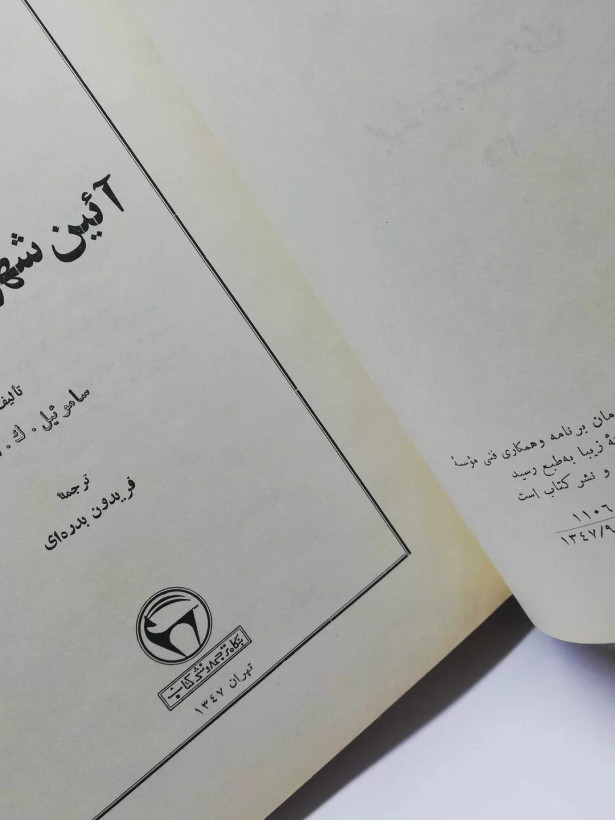 آئین شهر
تألیف
ساموئیل . ک .
ترجمهٔ
فریدون بدره‌ای
بنگاه ترجمه و نشر کتاب
تهران ۱۳٤۷
مان برنامه و همکاری فنی مؤسسهٔ
هٔ زیبا به‌طبع رسید
و نشر کتاب است
۱۱۰۶
۱۳٤۷/۹